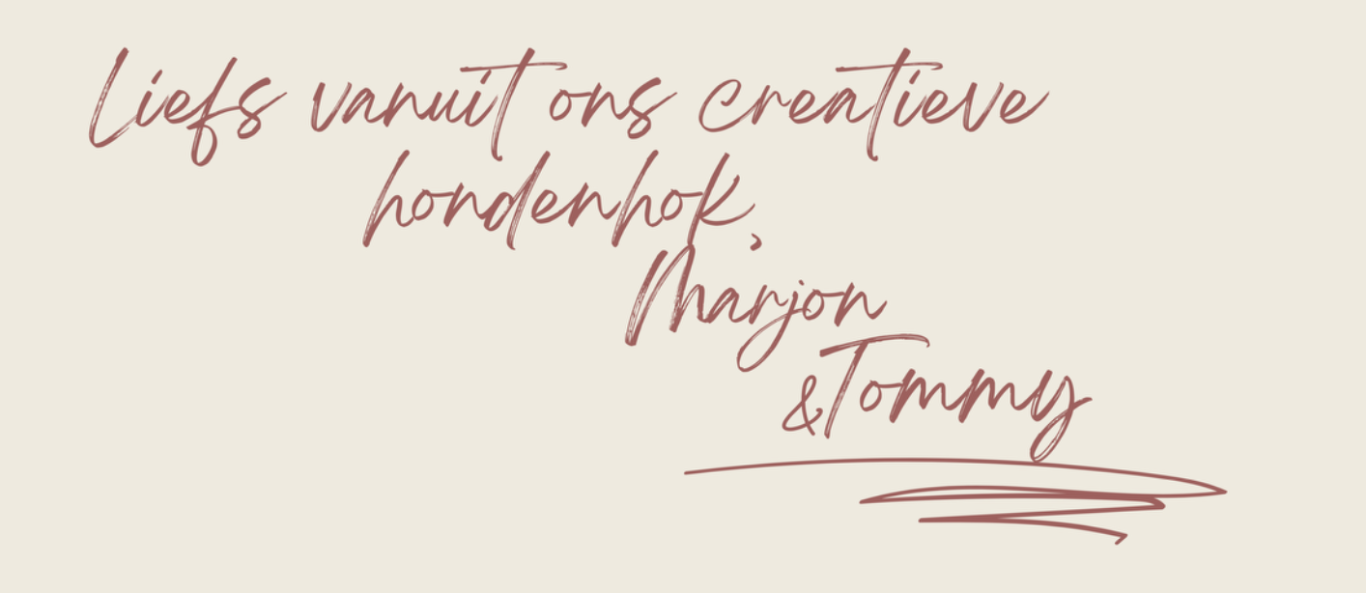 Liefs vanuit ons creatieve
hondenhok,
Marjon
&Tommy